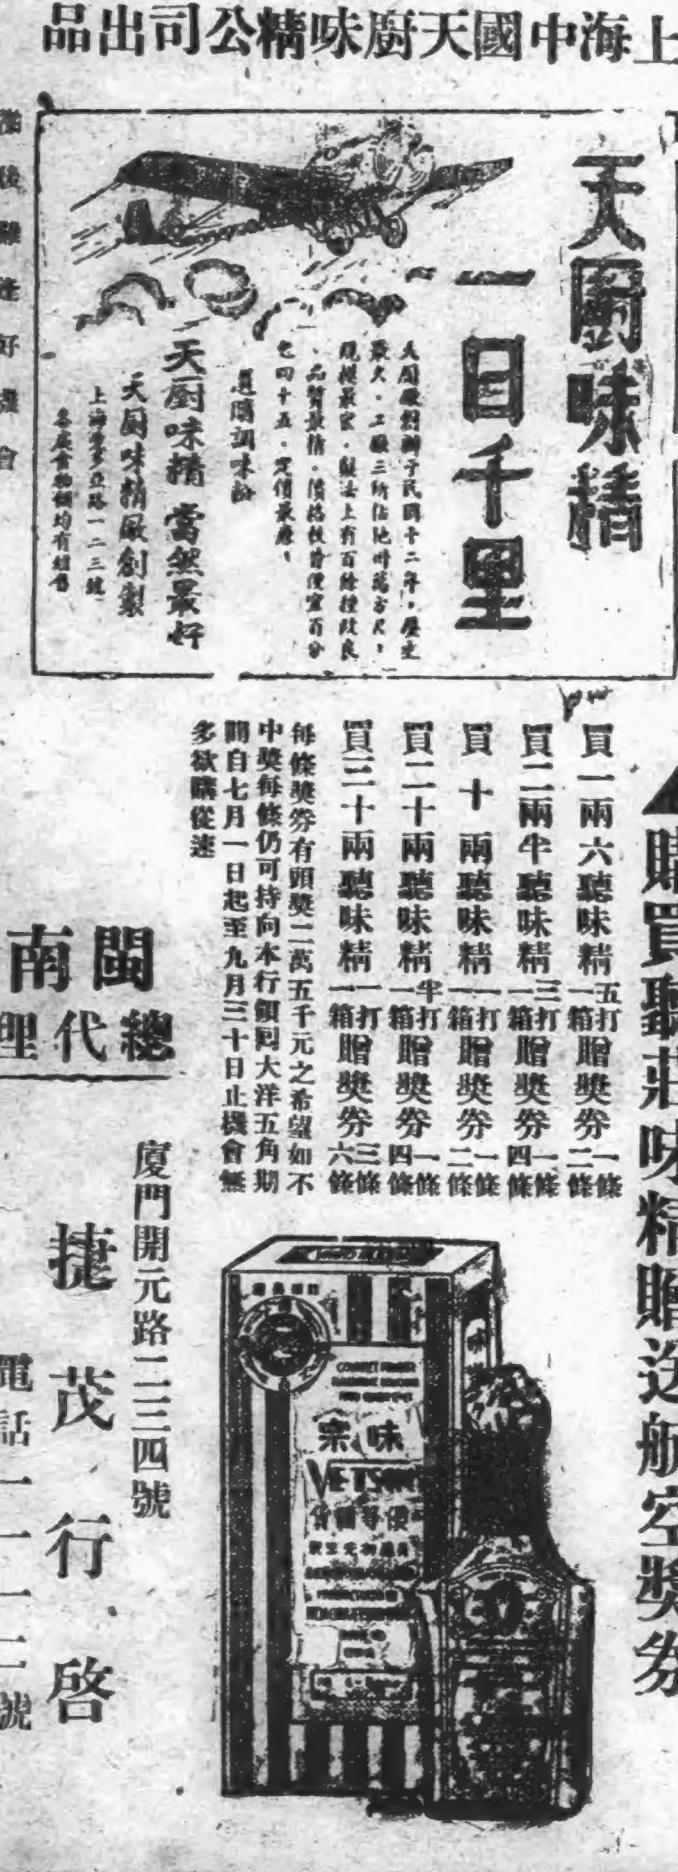 上海中國天廚味精公司出品
天廚味精
一日千里
天廚廠創辦于民國十二年，歷史
最大，工廠三所佔地卅萬方尺，
規模最宏，製法上有百餘種改良
，品質最精，價格較昔便宜百分
之四十五，定價最廉，
選購調味粉
天厨味精 當然最好
天厨味精廠創製
上海愛多亞路一二三號
各處食物舖均有經售
後難逢好機會
購買聽莊味精贈送航空獎券
買一兩六聽味精五打贈獎券一條
一箱二條
買二兩半聽味精三打贈獎券一條
一箱四條
買十兩聽味精一打贈獎券一條
一箱二條
買二十兩聽味精半打贈獎券一條
一箱四條
買三十兩聽味精一打贈獎券三條
一箱六條
每條獎券有頭獎二萬五千元之希望如不
中獎每條仍可持向本行領回大洋五角期
間自七月一日起至九月三十日止機會無
多欲購從速
閩南
總代理
廈門開元路二三四號
捷茂行啓
電話一一一二號
味宗
VE-TSIN